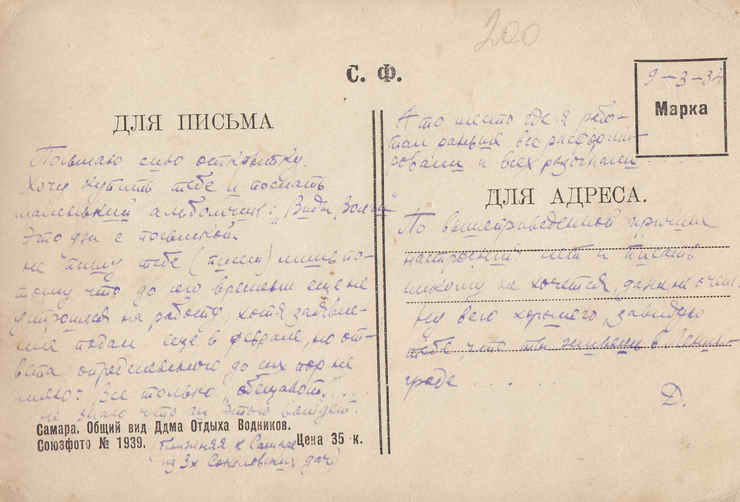 200
С. Ф.
ДЛЯ ПИСЬМА
Посылаю сию открытку.
Хочу купить тебе и послать
маленький альбомчик: "Виды Волги"
Это для с посылкой
не пишу тебе (писем) лишь по-
тому что до сего времени еще не
устроился на работу, хотя заявле-
ние подал еще в феврале, но от-
вета определенного до сих пор не
имею: все только "обещают"....
не знаю что из этого выйдет.
Самара. Общий вид Ддма Отдыха Водников.
Союзфото № 1939. Цена 35 к.
Ближняя к Самаре
(из 3х Соколовских дач)
9-3-34
Марка
А то место где я рабо-
тал раньше все расформи-
ровали и всех разогнали
ДЛЯ АДРЕСА.
По вышеприведенной причине
настроений нет и писать
никому не хочется, да и не о чем.
Ну всего хорошего завидую
тебе что ты живешь в Ленин-
граде . . . . . .
Д.